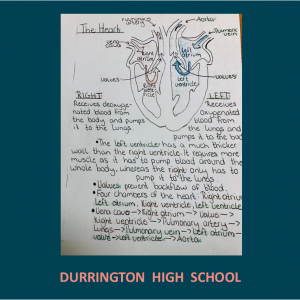 The Heart
Pulmonary
artery
Aorta
Pulmonary
vein
vena
cava
Right
atrium
left
atrium
valves
valves
Right
ventricle
left
ventricle
RIGHT:
Receives deoxyge-
nated blood from
the body and pumps
it to the lungs
LEFT:
Receives
oxygenated
blood from
the lungs and
pumps it to the body
• The left ventricle has a much thicker
wall than the right ventricle. It requires more
muscle as it has to pump blood around the
whole body, whereas the right only has to
pump it to the lungs.
• Valves prevent backflow of blood.
• Four chambers of the heart: Right atrium
Left atrium, Right ventricle, left ventricle
• Vena cava → Right atrium → Valve →
Right ventricle → Pulmonary artery →
Lungs → Pulmonary vein → Left atrium →
valve → left ventricle → Aorta
DURRINGTON HIGH SCHOOL